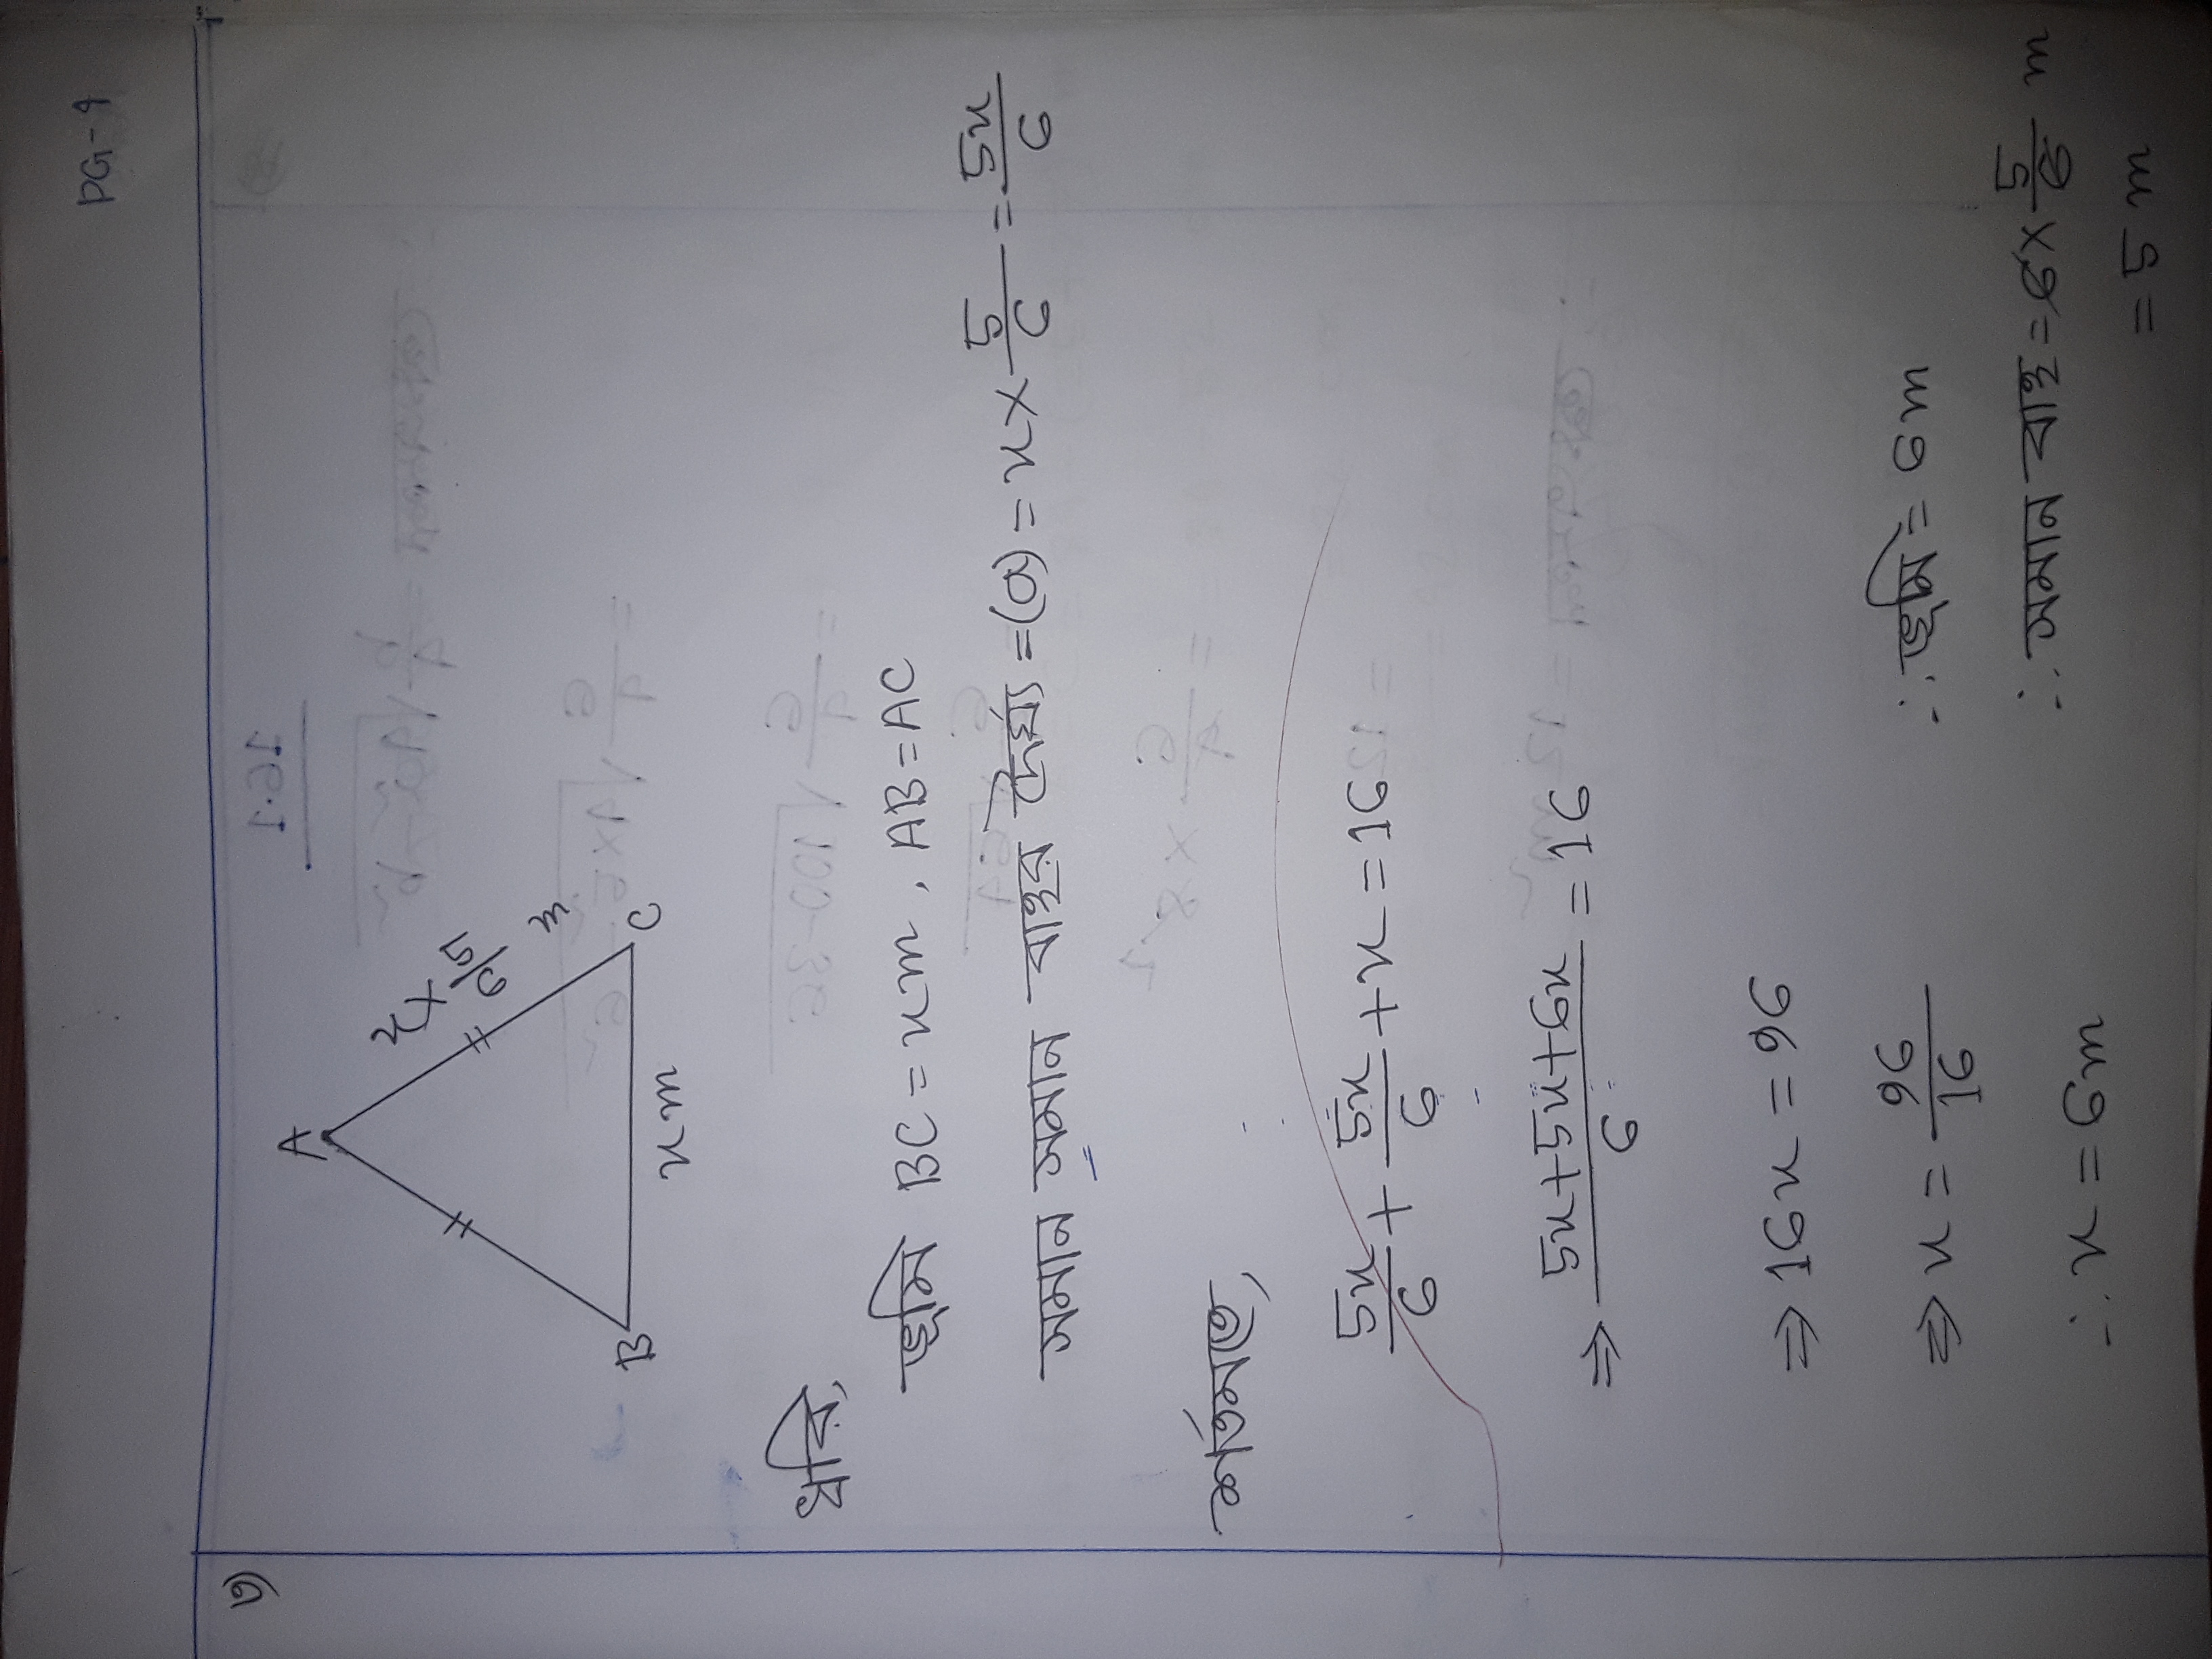 PG-9
৩)
A
x × 5/6 m
B
C
x m
ধরি,
ভূমি BC = x m, AB = AC
সমান সমান বাহুর দৈর্ঘ্য = (a) = x × 5/6 = 5x/6
শর্তমতে,
5x/6 + 5x/6 + x = 16
⇒ (5x+5x+6x)/6 = 16
⇒ 16x = 96
⇒ x = 96/16
∴ x = 6m
∴ ভূমি = 6m
∴ সমান বাহু = 6 × 5/6 m
= 5 m